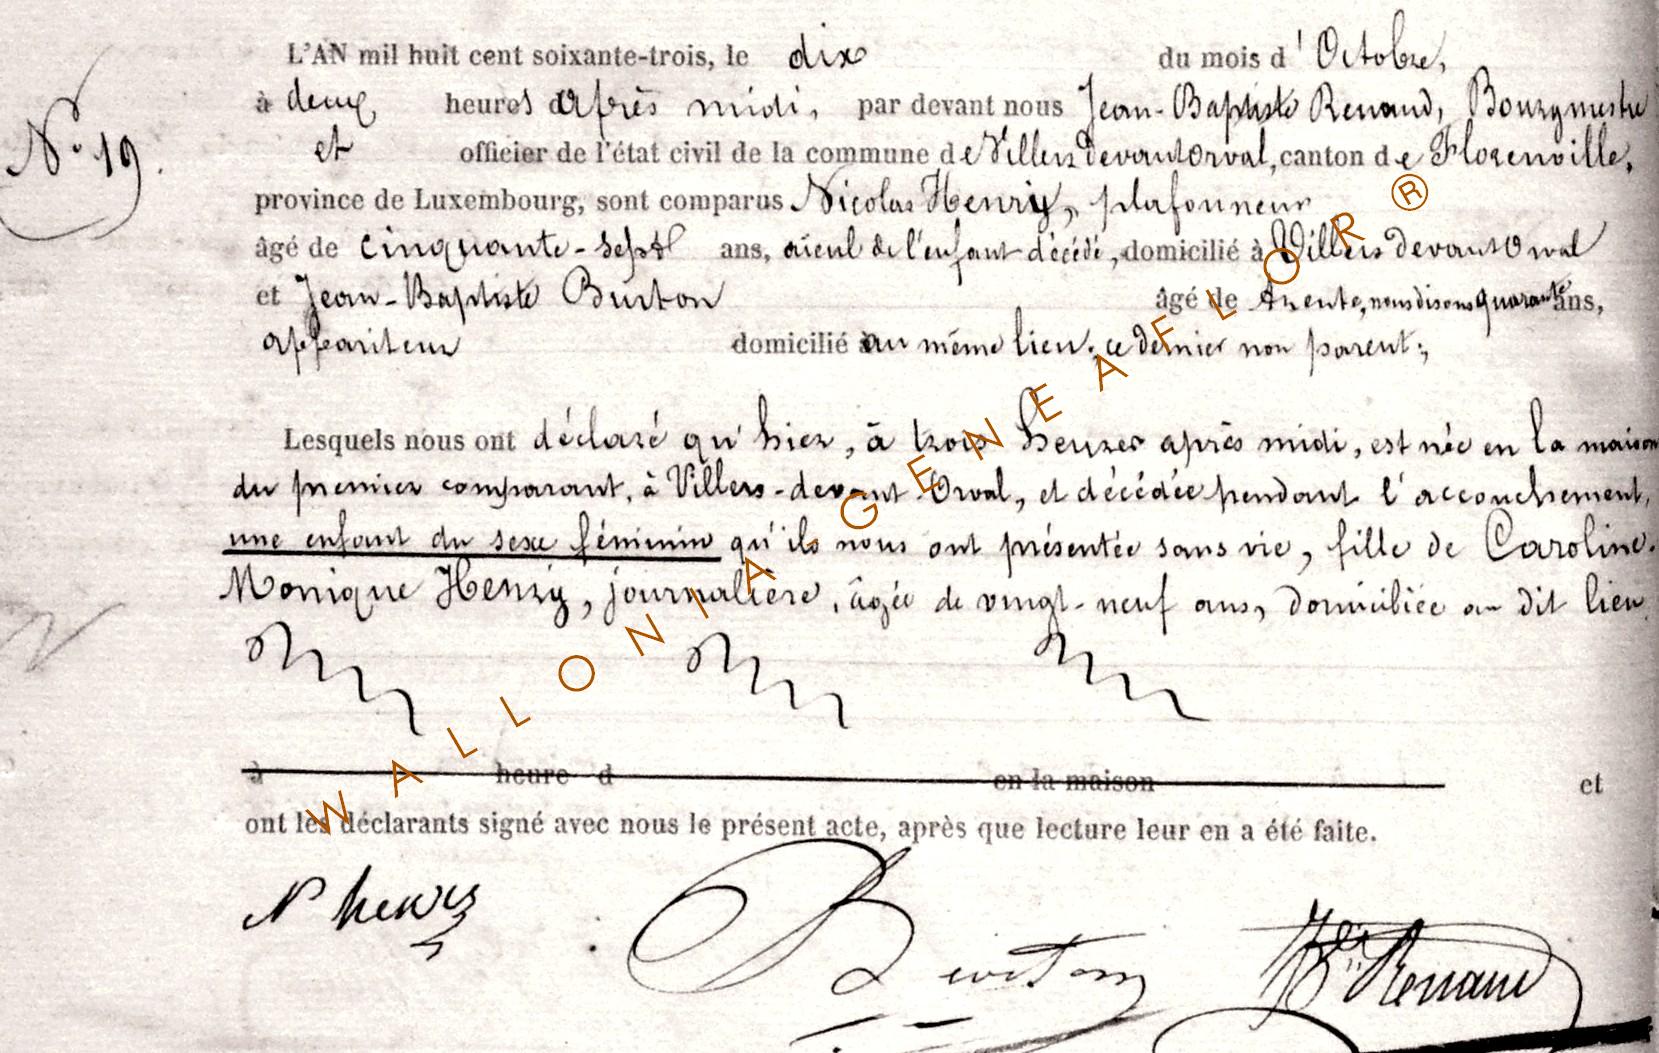 L'AN mil huit cent soixante-trois, le dix du mois d'Octobre,
à deux heures d'après midi, par devant nous Jean-Baptiste Renaud, Bourgmestre
N.° 19.
et officier de l'état civil de la commune de Villers devant Orval, canton de Florenville,
province de Luxembourg, sont comparus Nicolas Henry, plafonneur
âgé de cinquante-sept ans, aïeul de l'enfant décédé, domicilié à Villers devant Orval
et Jean-Baptiste Burton âgé de trente, nous disons quarante ans,
appariteur domicilié au même lieu, ce dernier non parent;
Lesquels nous ont déclaré qu'hier, à trois heures après midi, est née en la maison
du premier comparant, à Villers-devant-Orval, et décédée pendant l'accouchement,
une enfant du sexe féminin qu'ils nous ont présentée sans vie, fille de Caroline
Monique Henry, journalière, âgée de vingt-neuf ans, domiciliée au dit lieu
à heure d en la maison et
ont les déclarants signé avec nous le présent acte, après que lecture leur en a été faite.
N henry
Burton
Renaud
WALLONIA-GENEAFLOR ®